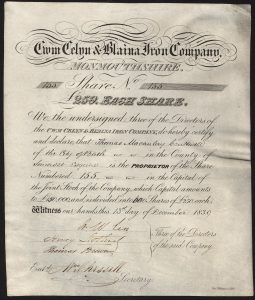 Cwm Celyn & Blaina Iron Company,
MONMOUTHSHIRE.
155 Share No. 155
£250. EACH SHARE.
We the undersigned, three of the Directors of
the CWM CELYN & BLAINA IRON COMPANY, do hereby certify
and declare, that Thomas Macaulay
of the City of Bath in the County of
Somerset is the PROPRIETOR of the Share
Numbered 155 in the Capital of
the Joint Stock of the Company, which Capital amounts
to and is divided into Shares of £250 each
Witness our hands this 13th day of December 1839
Three of the Directors
of the said Company.
Thomas Brown
Secretary